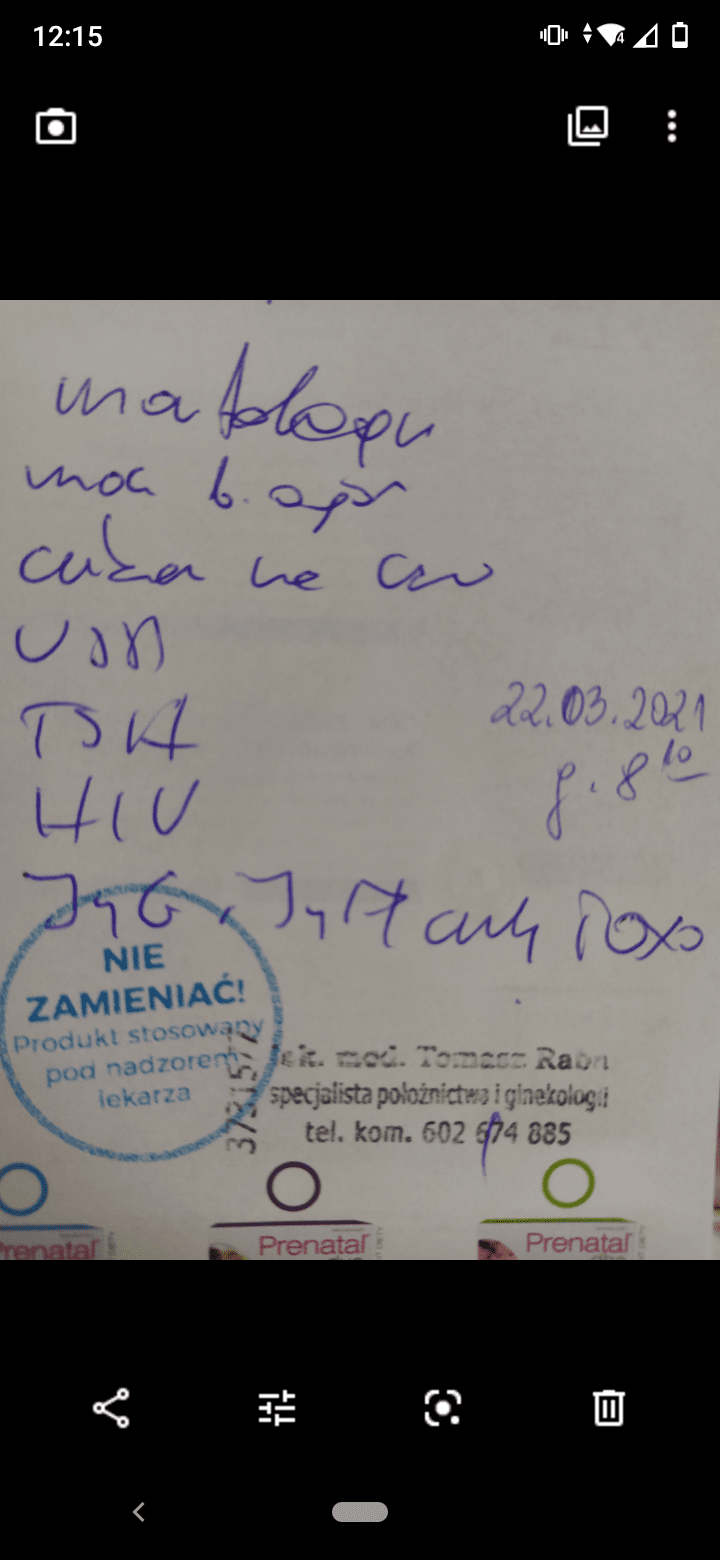 12:15
4
morfologia
mocz b. ogólne
cukier na czczo
VDRL
TSH
HIV
22.03.2021
g. 8 10
IgG, IgM anty Toxo
NIE
ZAMIENIAĆ!
Produkt stosowany
pod nadzorem
lekarza
lek. med. Tomasz
specjalista położnictwa i ginekologii
tel. kom. 602 674 885
Prenatal
Prenatal
Prenatal